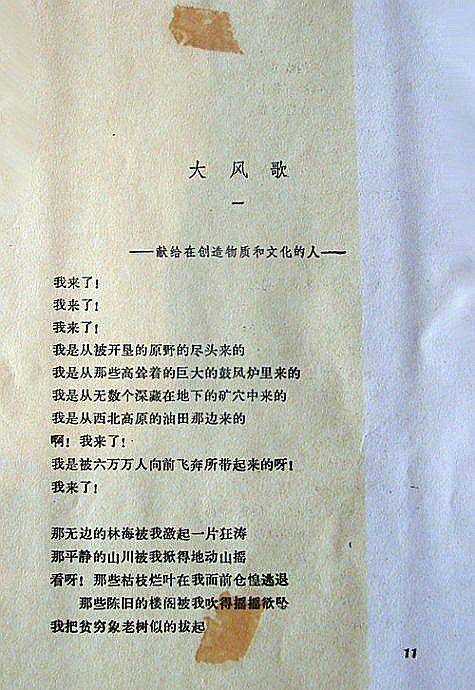 大风歌
一
——献给在创造物质和文化的人——
我来了！
我来了！
我来了！
我是从被开垦的原野的尽头来的
我是从那些高耸着的巨大的鼓风炉里来的
我是从无数个深藏在地下的矿穴中来的
我是从西北高原的油田那边来的
啊！我来了！
我是被六万万人向前飞奔所带起来的呀！
我来了！
那无边的林海被我激起一片狂涛
那平静的山川被我掀得地动山摇
看呀！那些枯枝烂叶在我面前仓惶逃退
那些陈旧的楼阁被我吹得摇摇欲坠
我把贫穷象老树似的拔起
11